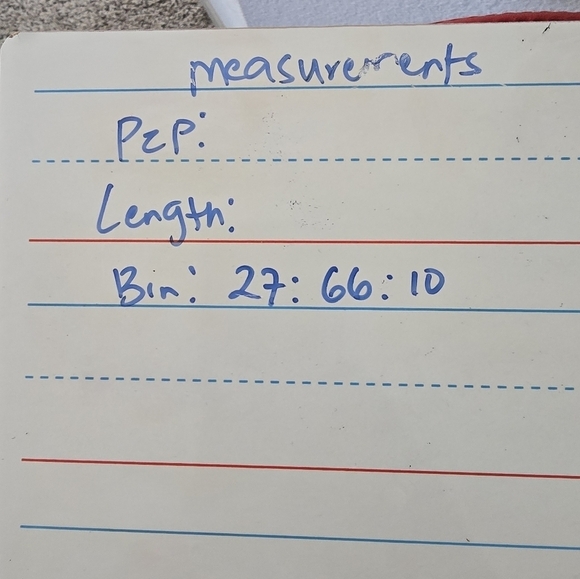 measurements
P2P:
Length:
Bin: 27: 66: 10